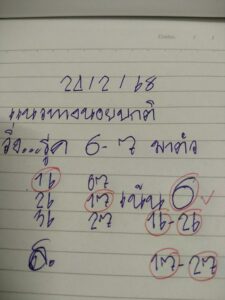 21/2/68
แนวทางหอยนาติ
วิ่ง...รูด 6-7 มาตัว
16 67
26 17 เน้น 6
36 27 16-26
6. 17-27